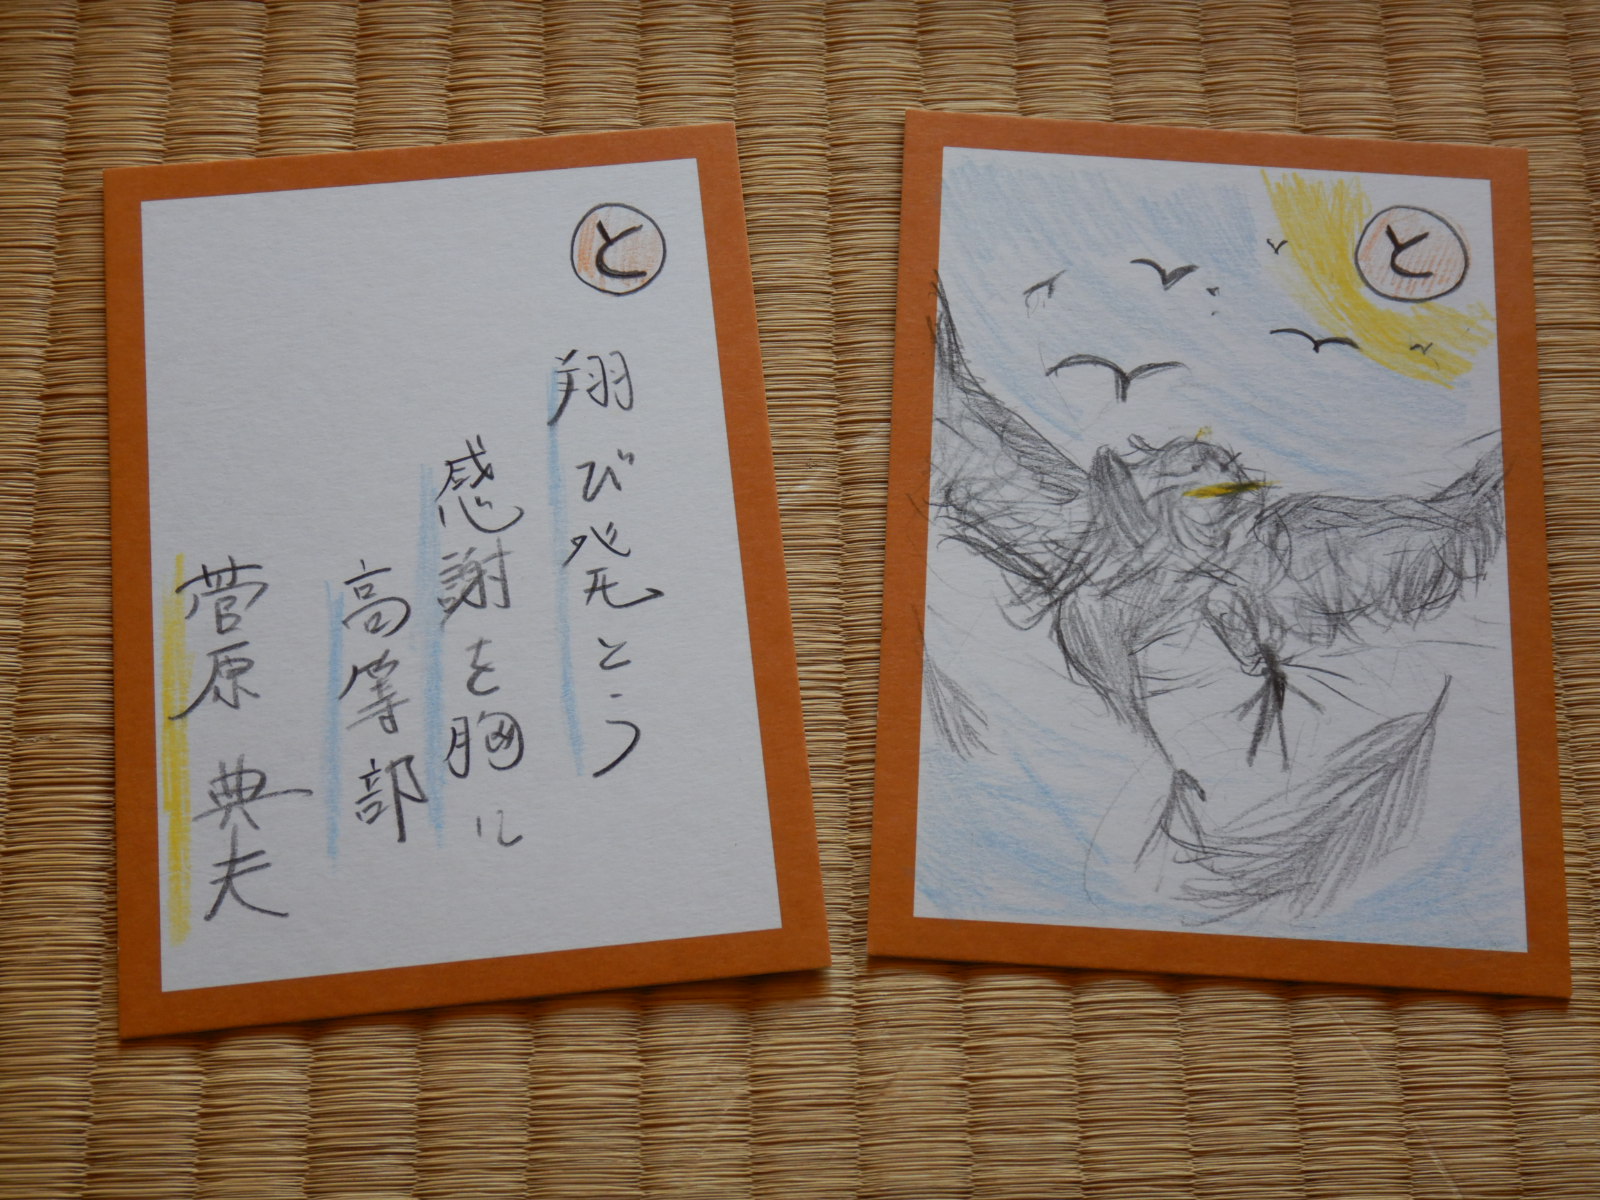 と
翔び発とう
感謝を胸に
高等部
菅原 典夫
と